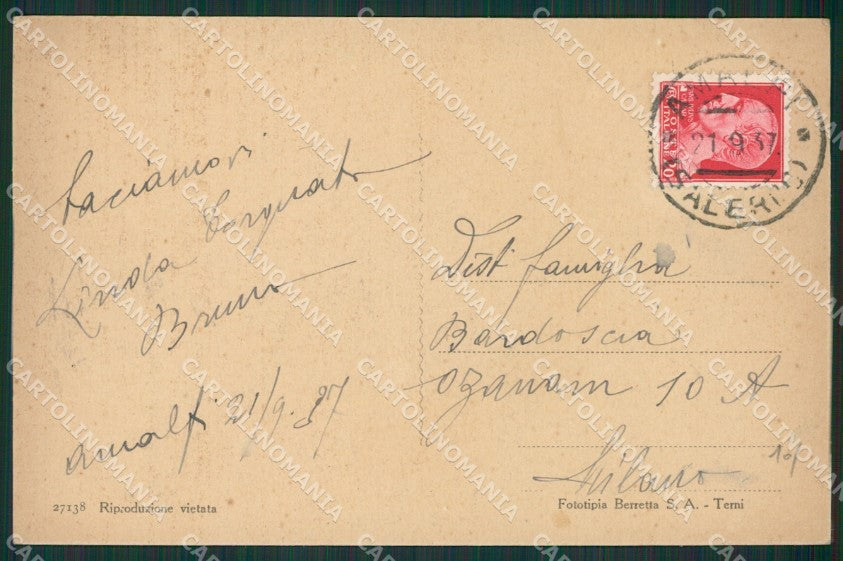 Torquato
Linda
Bruno
Amalfi 21/9.37
27138 Riproduzione vietata
AMALFI
21.9.37
(SALERNO)
Dist famiglia
Bardoscia
Ozanam 10 A
Milano
Fototipia Berretta S. A. - Terni
CARTOLINOMANIA